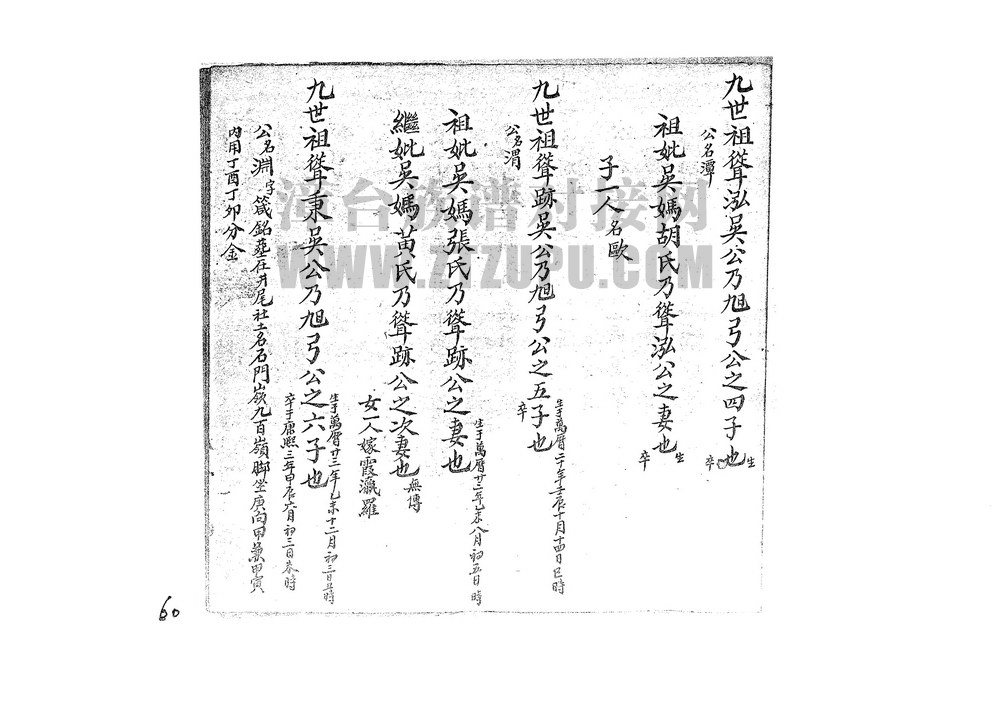 九世祖聳泓吳公乃旭弓公之四子也 生 卒
公名潭
祖妣吳媽胡氏乃聳泓公之妻也 生 卒
子一人名歐
九世祖聳跡吳公乃旭弓公之五子也 生于萬曆二十年壬辰十月十四日巳時 卒
公名渭
祖妣吳媽張氏乃聳跡公之妻也 生于萬曆廿三年乙未八月初五日時
繼妣吳媽黃氏乃聳跡公之次妻也 無傳
女一人嫁霞瀛羅
九世祖聳秉吳公乃旭弓公之六子也 生于萬曆廿三年乙未十二月初三日丑時 卒于康熙三年甲辰六月初三日時
公名淵字箴銘墓在井尾社土名石門嶺九百嶺脚坐庚向甲兼甲寅
內用丁酉丁卯分金
漳台族谱对接网
WWW.ZTZUPU.COM
60